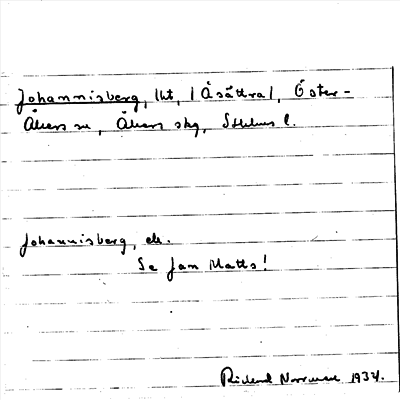 Johannisberg, lht, (Åsättra), Öster-
Åkers sn, Åkers skg, Sthlms l.
Johannisberg, ell.
Se Jan Matts!
Rickard 1934.